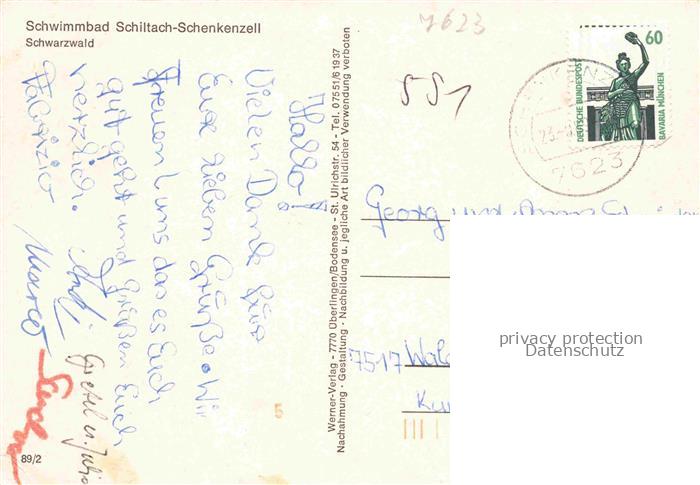 Schwimmbad Schiltach-Schenkenzell
Schwarzwald
7623
551
60
DEUTSCHE BUNDESPOST
BAVARIA MÜNCHEN
23.
7623
Hallo!
Vielen Dank für
Eure lieben Grüße. Wir
freuen uns das es Euch
gut geht und grüßen Euch
herzlich.
Fabrizio
Marco
Gretel u. Julio
Werner-Verlag - 7770 Überlingen/Bodensee - St. Ulrichstr. 54 - Tel. 07551/61937
Nachahmung · Gestaltung · Nachbildung u. jegliche Art bildlicher Verwendung verboten
Georg
7517
5
89/2
privacy protection
Datenschutz